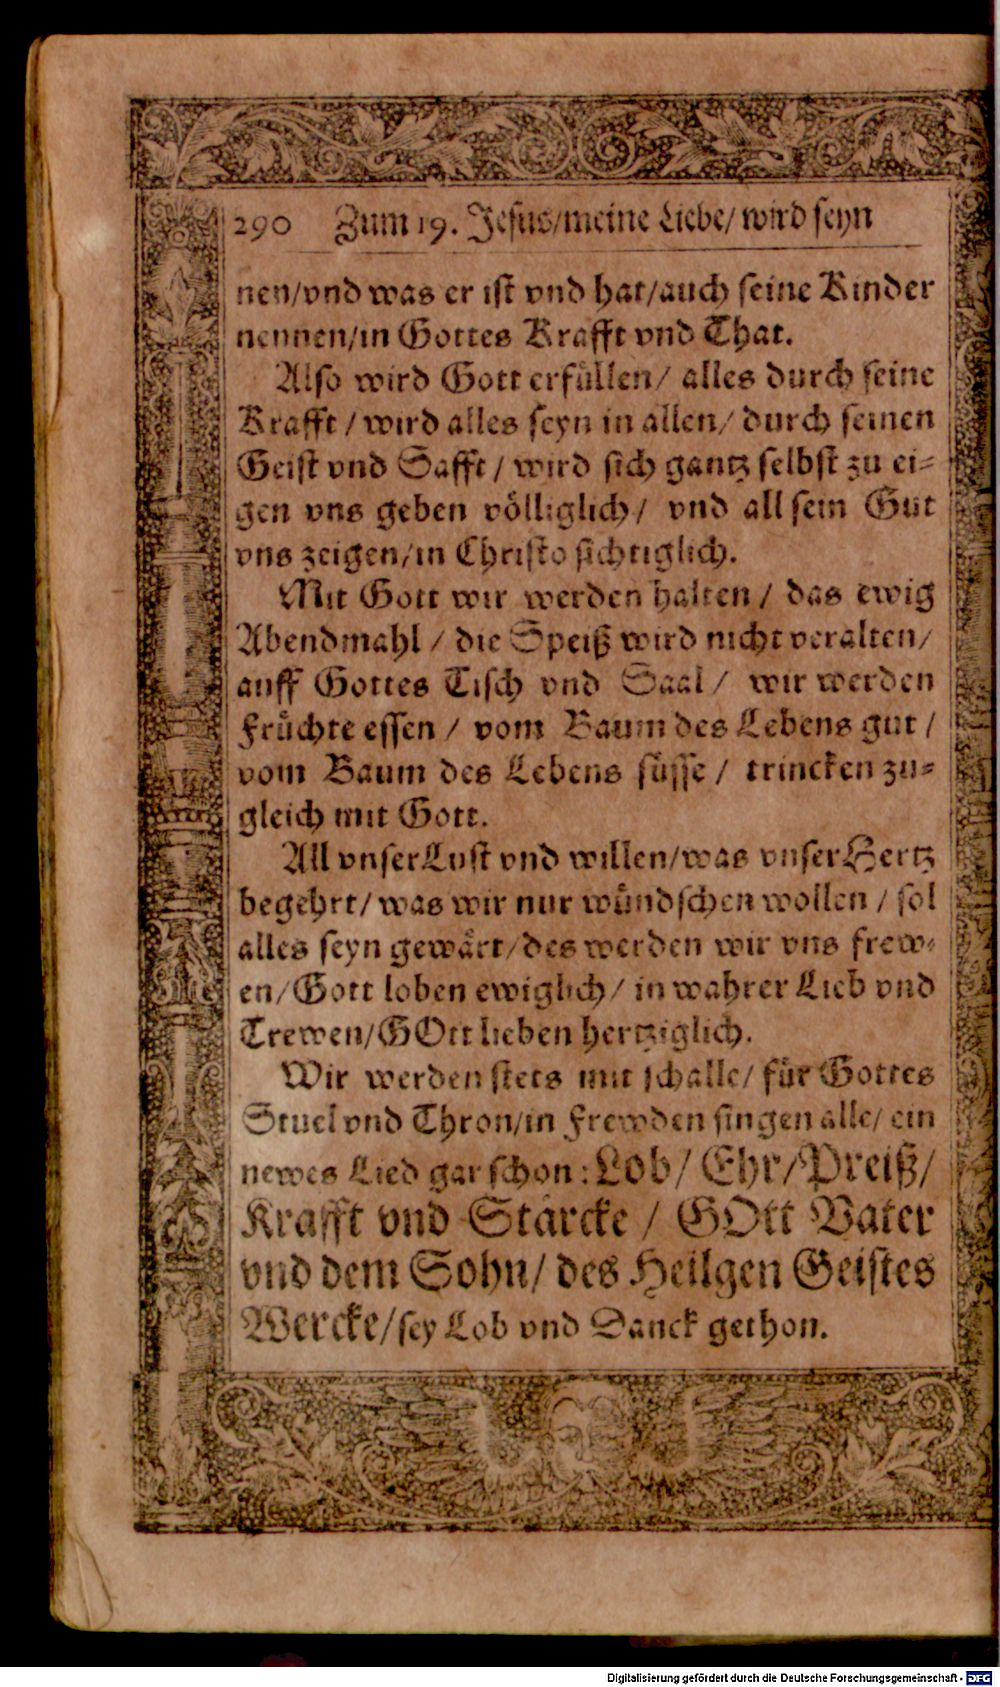 290 Zum 19. Jesus/meine Liebe/ wird seyn
nen/vnd was er ist vnd hat/auch seine Kinder
nennen/in Gottes Krafft vnd That.
Also wird Gott erfüllen/ alles durch seine
Krafft / wird alles seyn in allen/ durch seinen
Geist vnd Safft / wird sich gantz selbst zu ei-
gen vns geben völliglich/ vnd all sein Gut
vns zeigen/in Christo sichtiglich.
Mit Gott wir werden halten / das ewig
Abendmahl / die Speiß wird nicht veralten/
auff Gottes Tisch vnd Saal / wir werden
Früchte essen / vom Baum des Lebens gut /
vom Baum des Lebens süsse / trincken zu-
gleich mit Gott.
All vnser Lust vnd willen/was vnser Hertz
begehrt/ was wir nur wündschen wollen / sol
alles seyn gewärt/des werden wir vns frew-
en/Gott loben ewiglich/ in wahrer Lieb vnd
Trewen/GOtt lieben hertziglich.
Wir werden stets mit schalle/ für Gottes
Stuel vnd Thron/in Frewden singen alle/ ein
newes Lied gar schon: Lob/ Ehr/Preiß/
Krafft vnd Stärcke / GOtt Vater
vnd dem Sohn/ des Heilgen Geistes
Wercke/sey Lob vnd Danck gethon.
Digitalisierung gefördert durch die Deutsche Forschungsgemeinschaft - DFG